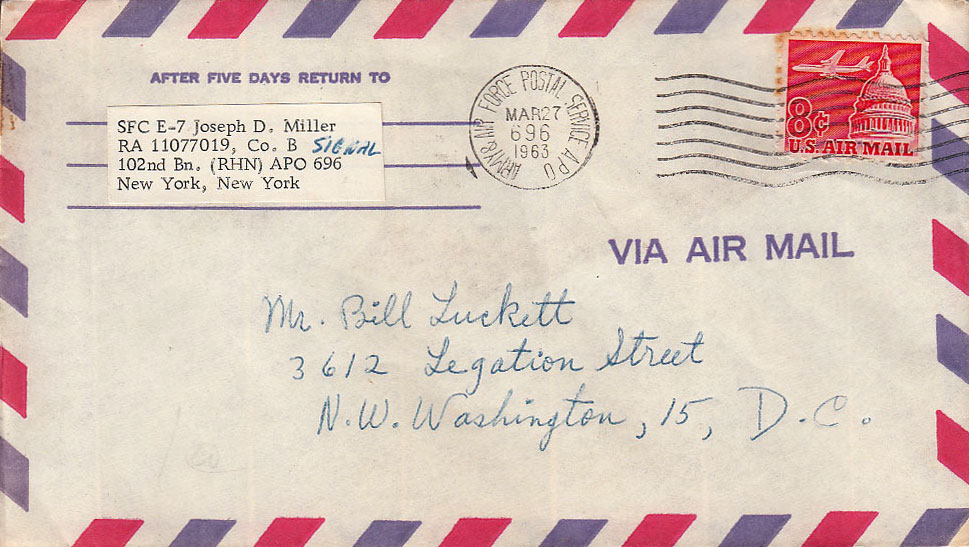 AFTER FIVE DAYS RETURN TO
SFC E-7 Joseph D. Miller
RA 11077019, Co. B SIGNAL
102nd Bn. (RHN) APO 696
New York, New York
ARMY & AIR FORCE POSTAL SERVICE APO
MAR 27
696
1963
8¢
U.S. AIR MAIL
VIA AIR MAIL
Mr. Bill Luckett
3612 Legation Street
N.W. Washington, 15, D.C.